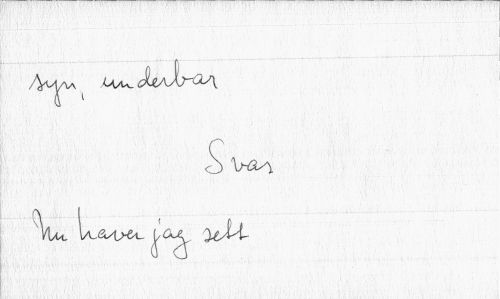 syn, underbar
Svar
Nu haver jag sett